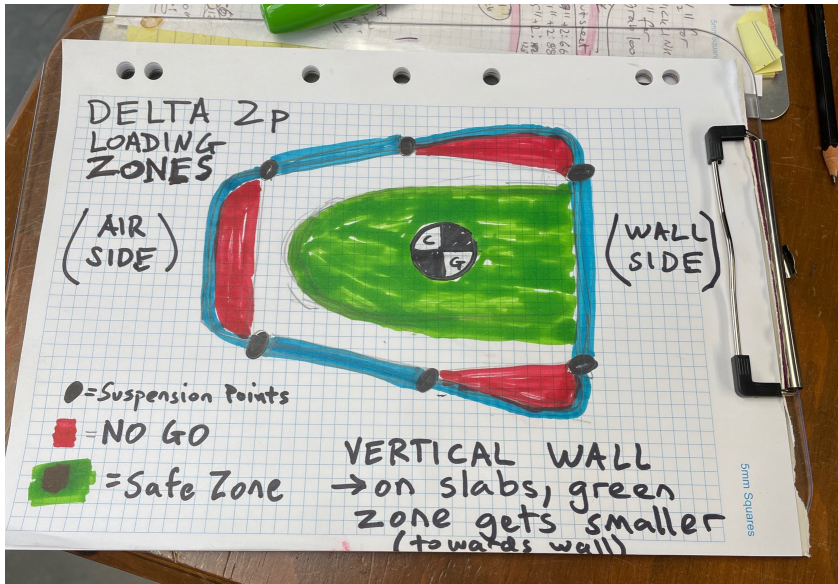 DELTA 2p
LOADING
ZONES
(AIR
SIDE)
C
G
(WALL
SIDE)
=Suspension Points
=NO GO
=Safe Zone
VERTICAL WALL
→on slabs, green
zone gets smaller
(towards wall)
5mm Squares